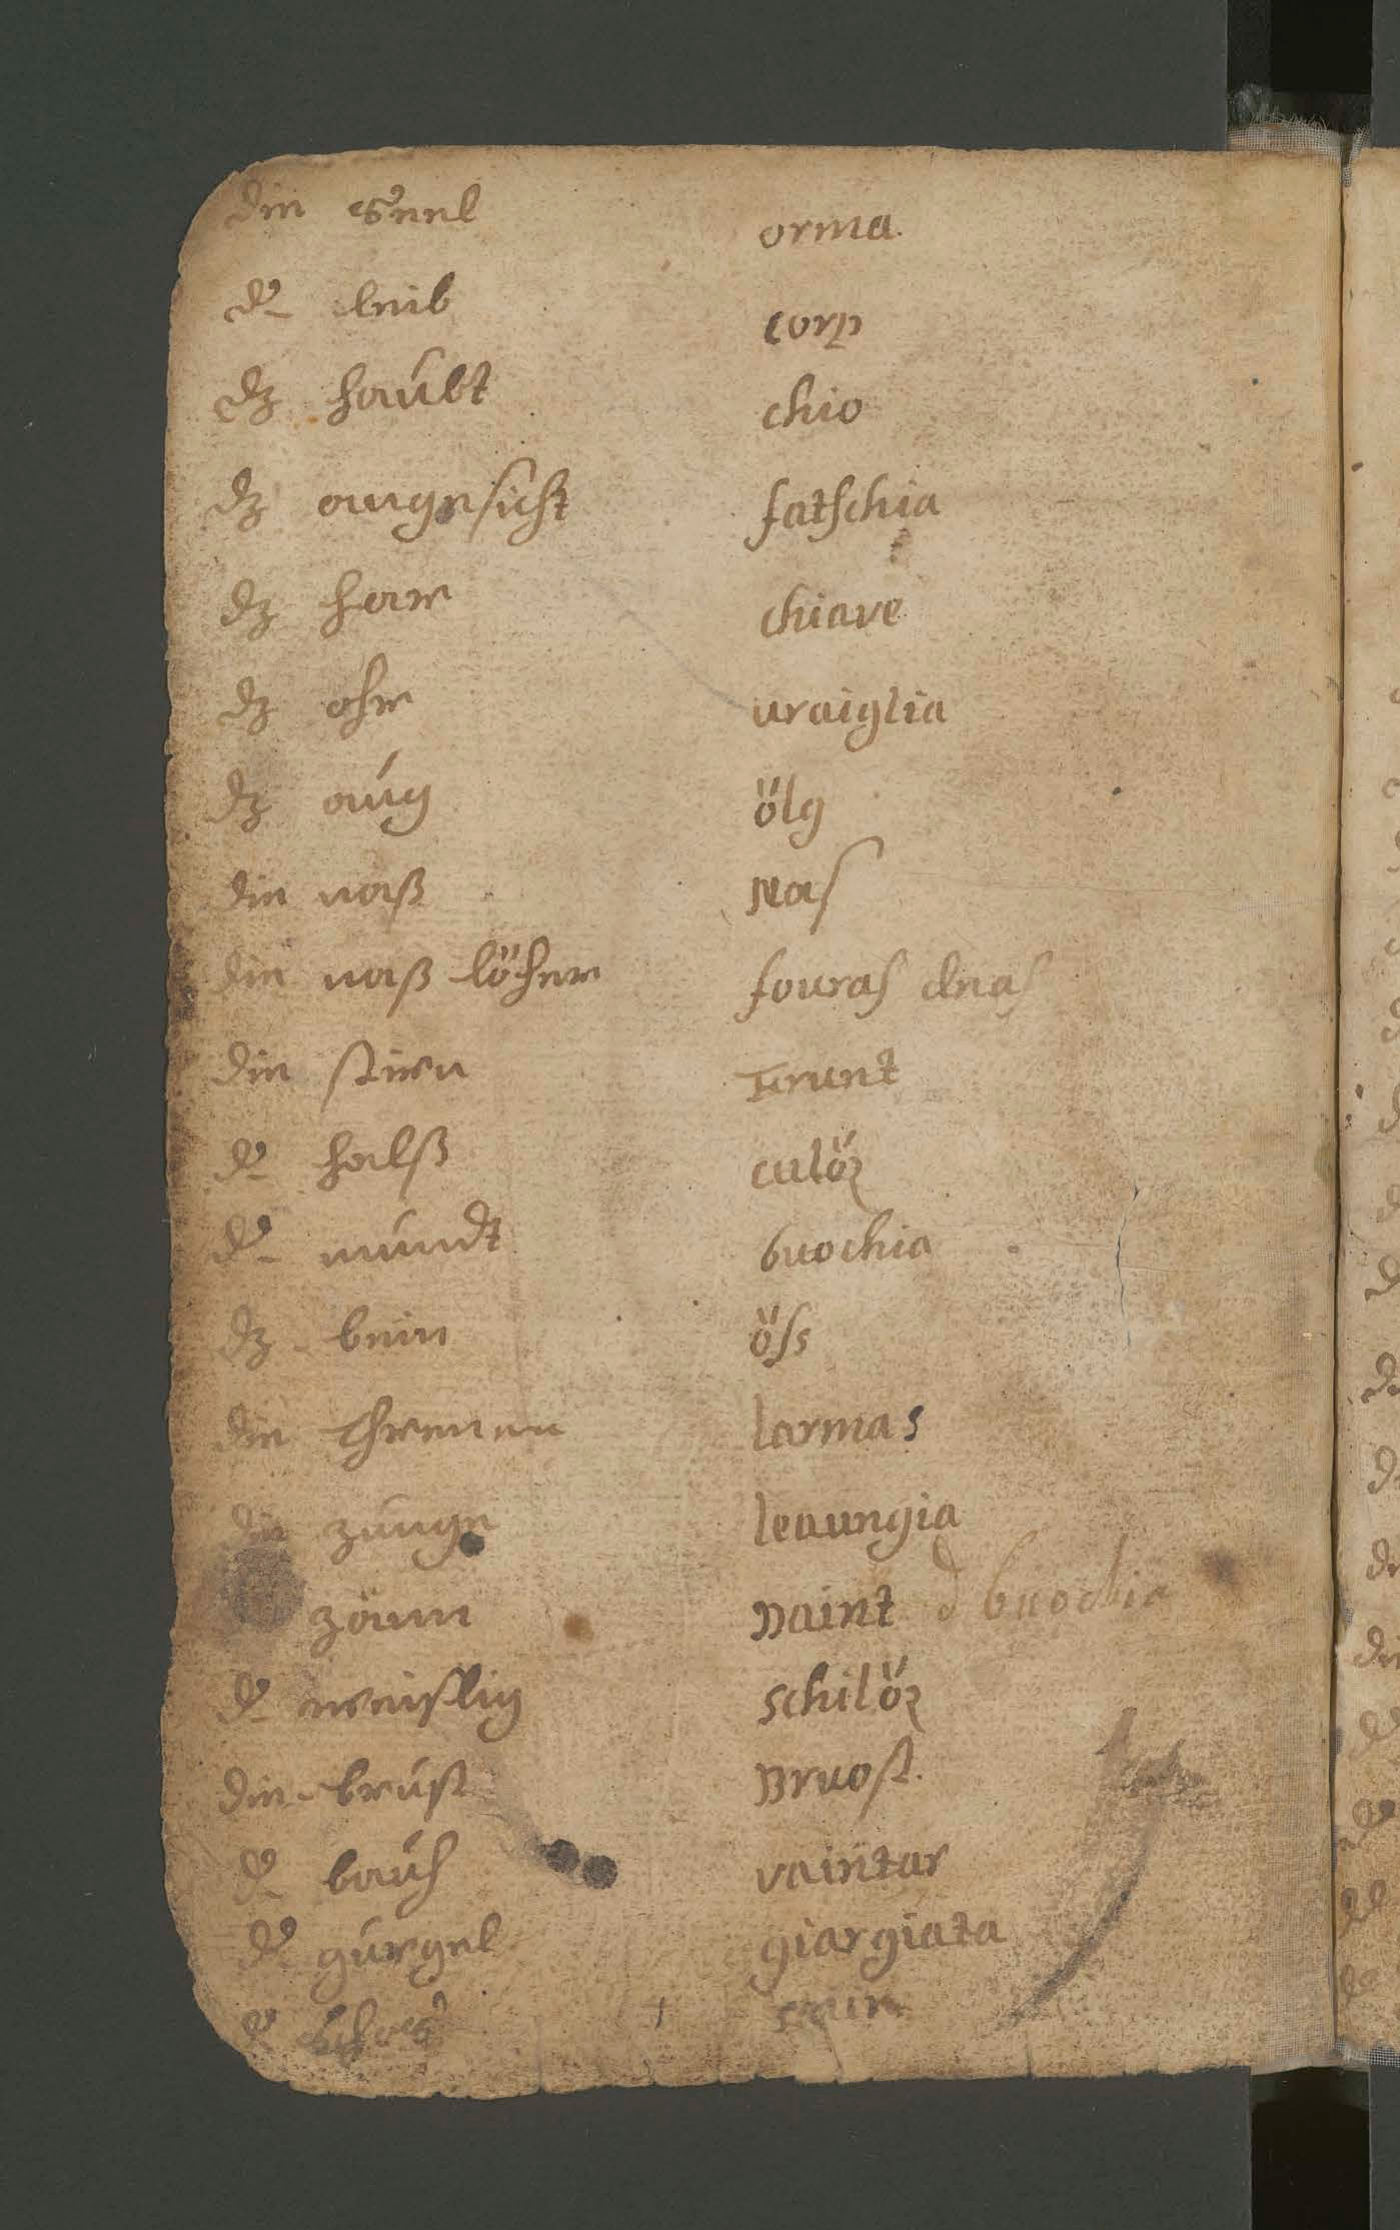 die Seel orma.
dr leib corp
dz haubt chio
dz angesicht fatschia
dz har chiave
dz ohr uraiglia
dz aug ölg
die naß nas
die naß löcher fouras dnas
die stirn frunt
dr halß culöz
dr mundt buochia
dz bein öss
die threnen larmas
die zunge leaungia
zänn Daint d buochia
dr schilöz
die brust Bruost.
dr bauch vaintar
dr gurgel giargiata
dr